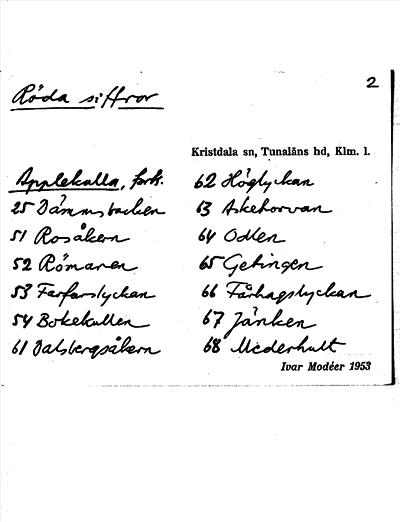 2
Röda siffror
Kristdala sn, Tunaläns hd, Klm. l.
Applekulla, fork.
25 Dämmsbacken
51 Rosåkern
52 Römaren
53 Farfarslyckan
54 Bokekullen
61 Dalsbergsåkern
62 Höglyckan
63 Askehorvan
64 Odlen
65 Getingen
66 Fårhagslyckan
67 Jänken
68 Mederhult
Ivar Modéer 1953